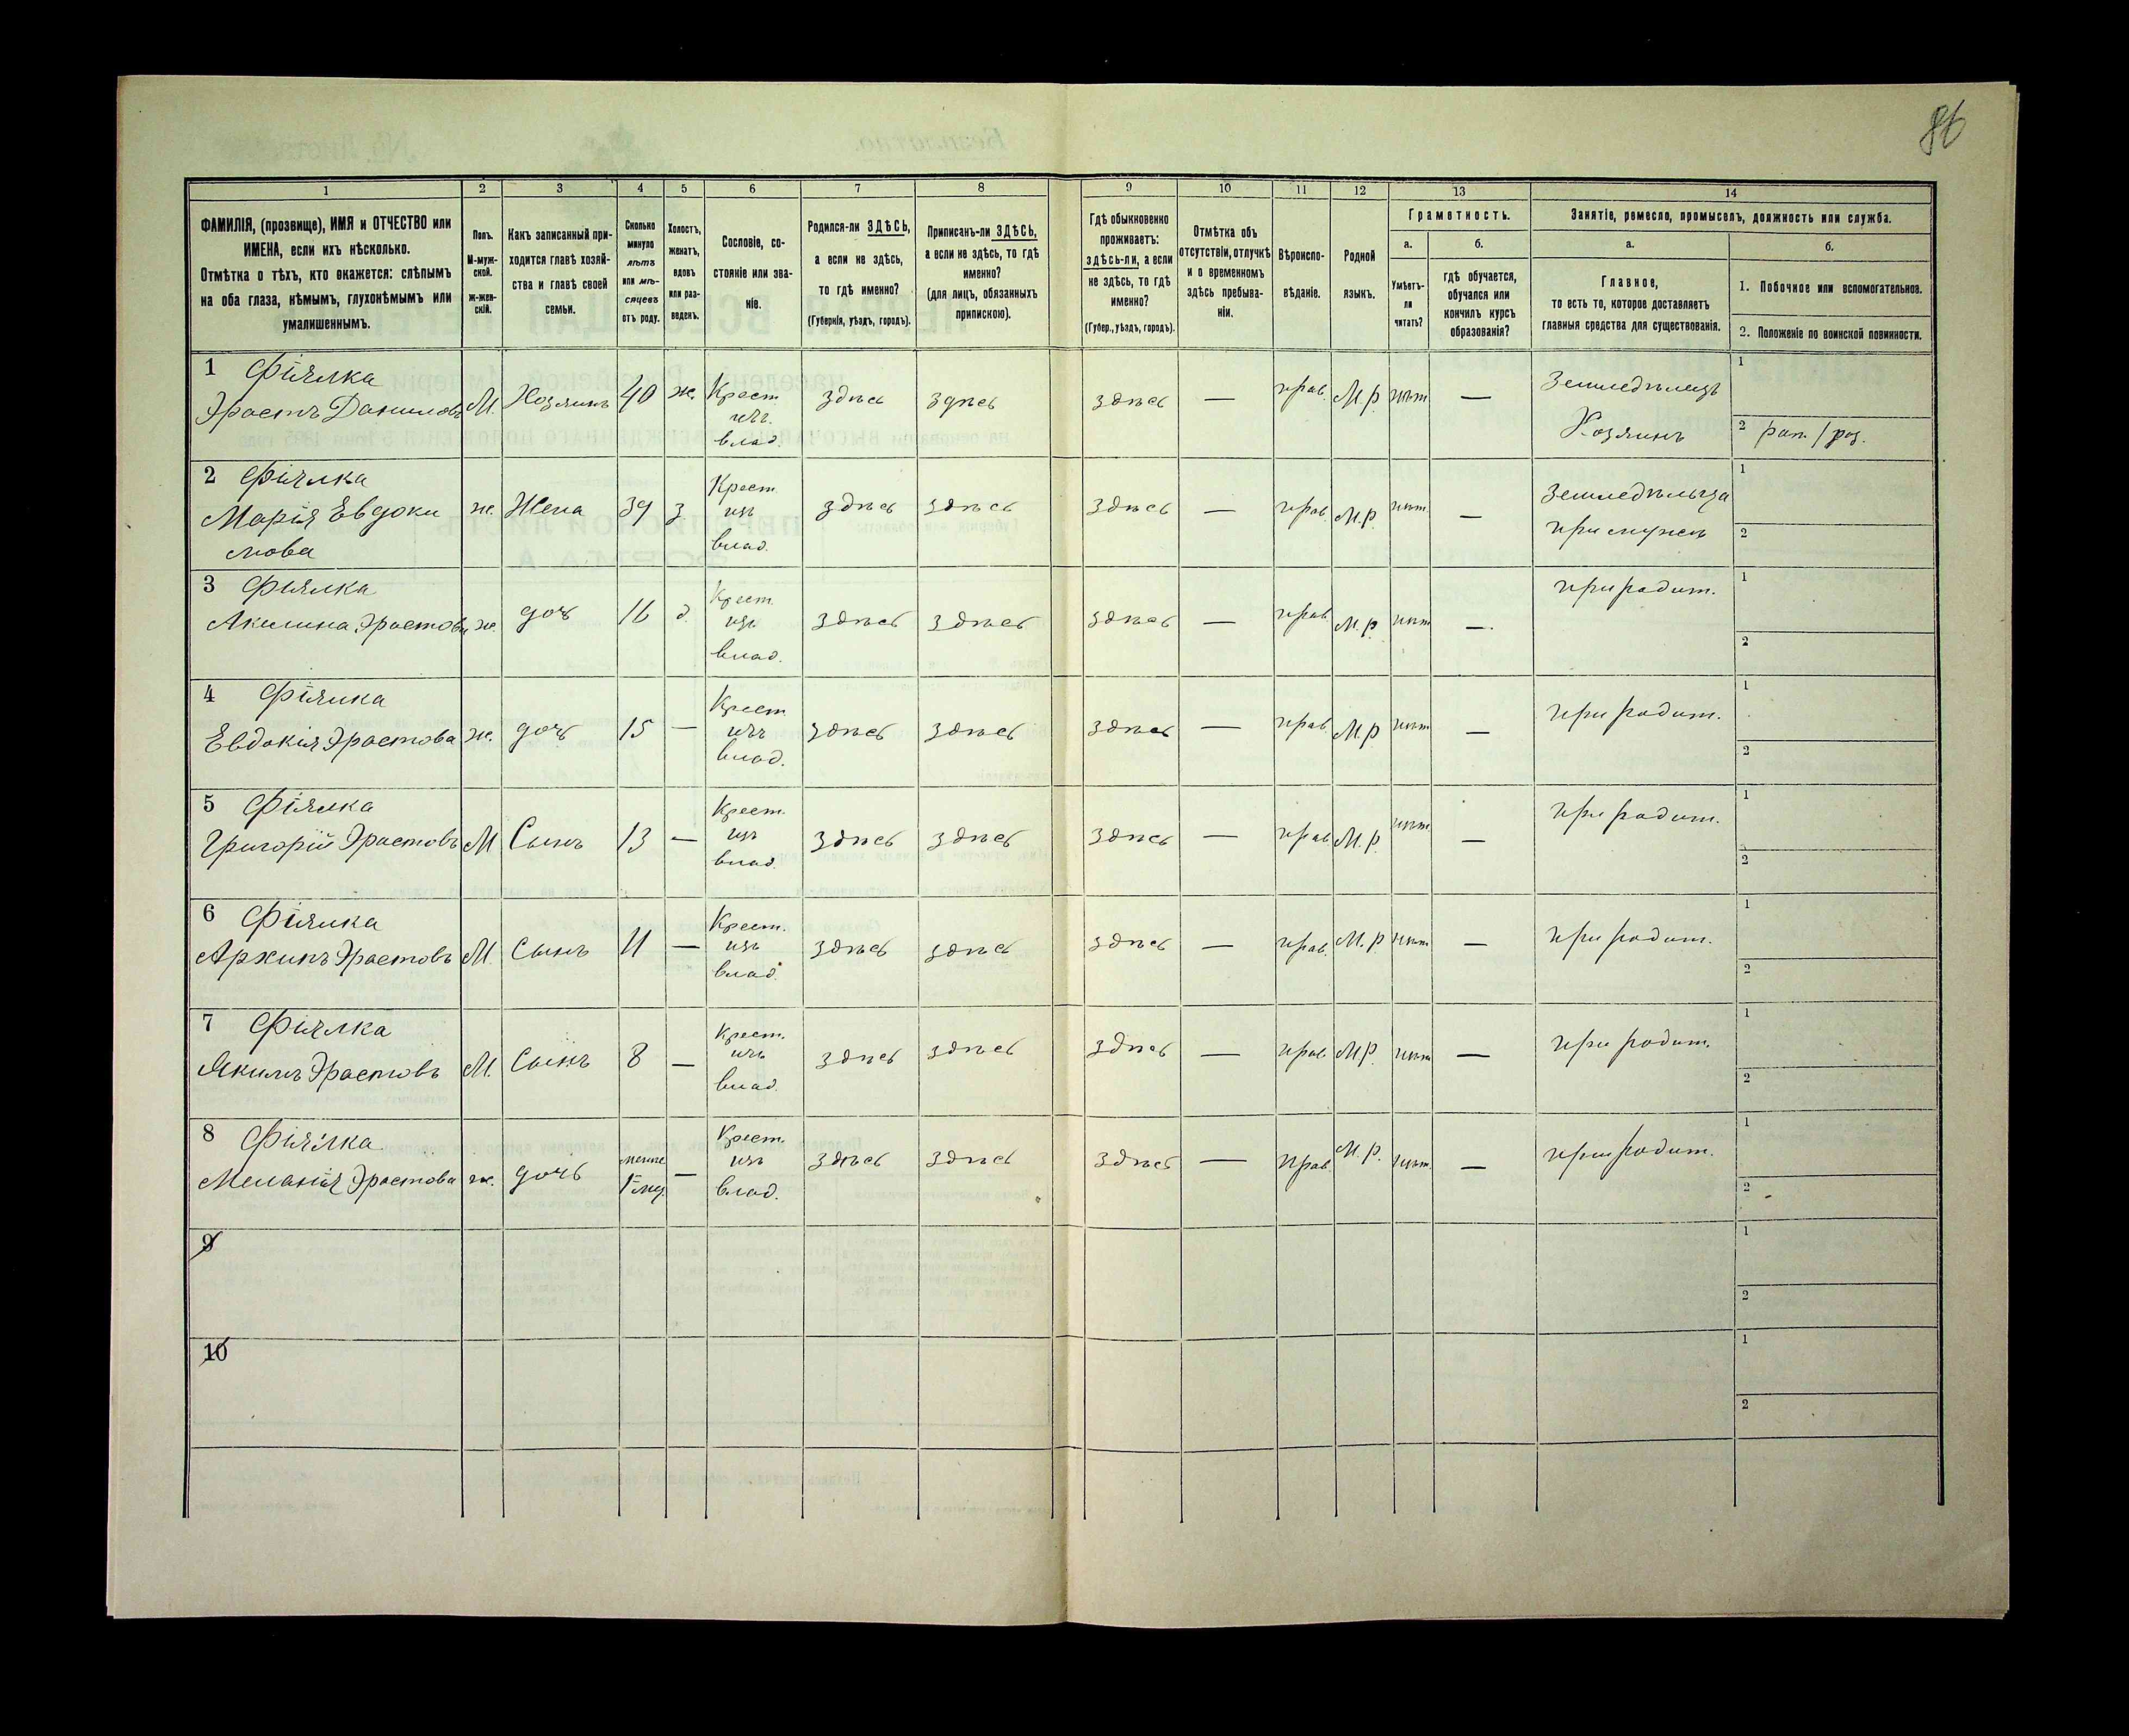 86
1
2
3
4
5
6
7
8
9
10
11
12
13
14
ФАМИЛІЯ, (прозвище), ИМЯ и ОТЧЕСТВО или
ИМЕНА, если ихъ нѣсколько.
Отмѣтка о тѣхъ, кто окажется: слѣпымъ
на оба глаза, нѣмымъ, глухонѣмымъ или
умалишеннымъ.
Полъ.
М-муж-
ской.
ж-жен-
скій.
Какъ записанный при-
ходится главѣ хозяй-
ства и главѣ своей
семьи.
Сколько
минуло
лѣтъ
или мѣ-
сяцевъ
отъ роду.
Холостъ,
женатъ,
вдовъ
или раз-
веденъ.
Сословіе, со-
стояніе или зва-
ніе.
Родился-ли ЗДѢСЬ,
а если не здѣсь,
то гдѣ именно?
(Губернія, уѣздъ, городъ).
Приписанъ-ли ЗДѢСЬ,
а если не здѣсь, то гдѣ
именно?
(для лицъ, обязанныхъ
припискою).
Гдѣ обыкновенно
проживаетъ:
здѣсь-ли, а если
не здѣсь, то гдѣ
именно?
(Губер., уѣздъ, городъ).
Отмѣтка объ
отсутствіи, отлучкѣ
и о временномъ
здѣсь пребыва-
ніи.
Вѣроиспо-
вѣданіе.
Родной
языкъ.
Грамотность.
а.
Умѣетъ-
ли
читать?
б.
гдѣ обучается,
обучался или
кончилъ курсъ
образованія?
Занятіе, ремесло, промыселъ, должность или служба.
а.
Главное,
то есть то, которое доставляетъ
главныя средства для существованія.
б.
1. Побочное или вспомогательное.
2. Положеніе по воинской повинности.
1 Фіялка
Эрастъ Даниловъ М. Хозяинъ 40 ж. Крест. изъ влад. здѣсь здѣсь здѣсь — прав. М.р. нѣтъ — Земледѣлецъ
Хозяинъ
1
2
2 Фіялка
Марія Евдоки
мова ж. Жена 39 з Крест. изъ влад. здѣсь здѣсь здѣсь — прав. М.р. нѣт — Земледѣльца
при мужѣ
1
2
3 Фіялка
Акилина Эрастова ж. дочь 16 д. Крест. изъ влад. здѣсь здѣсь здѣсь — прав. М.р. нѣт — при родит.
1
2
4 Фіялка
Евдокія Эрастова ж. дочь 15 — Крест. изъ влад. здѣсь здѣсь здѣсь — прав. М.р. нѣт — при родит.
1
2
5 Фіялка
Григорій Эрастовъ М Сынъ 13 — Крест. изъ влад. здѣсь здѣсь здѣсь — прав. М.р. нѣт — при родит.
1
2
6 Фіялка
Архипъ Эрастовъ М. Сынъ 11 — Крест. изъ влад. здѣсь здѣсь здѣсь — прав. М.р. нѣт — при родит.
1
2
7 Фіялка
Якимъ Эрастовъ М. Сынъ 8 — Крест. изъ влад. здѣсь здѣсь здѣсь — прав. М.р. нѣт — при родит.
1
2
8 Фіялка
Меланія Эрастова ж. дочь менѣе — Крест. изъ влад. здѣсь здѣсь здѣсь — прав. М.р. нѣт. — при родит.
1
2
9
1
2
10
1
2